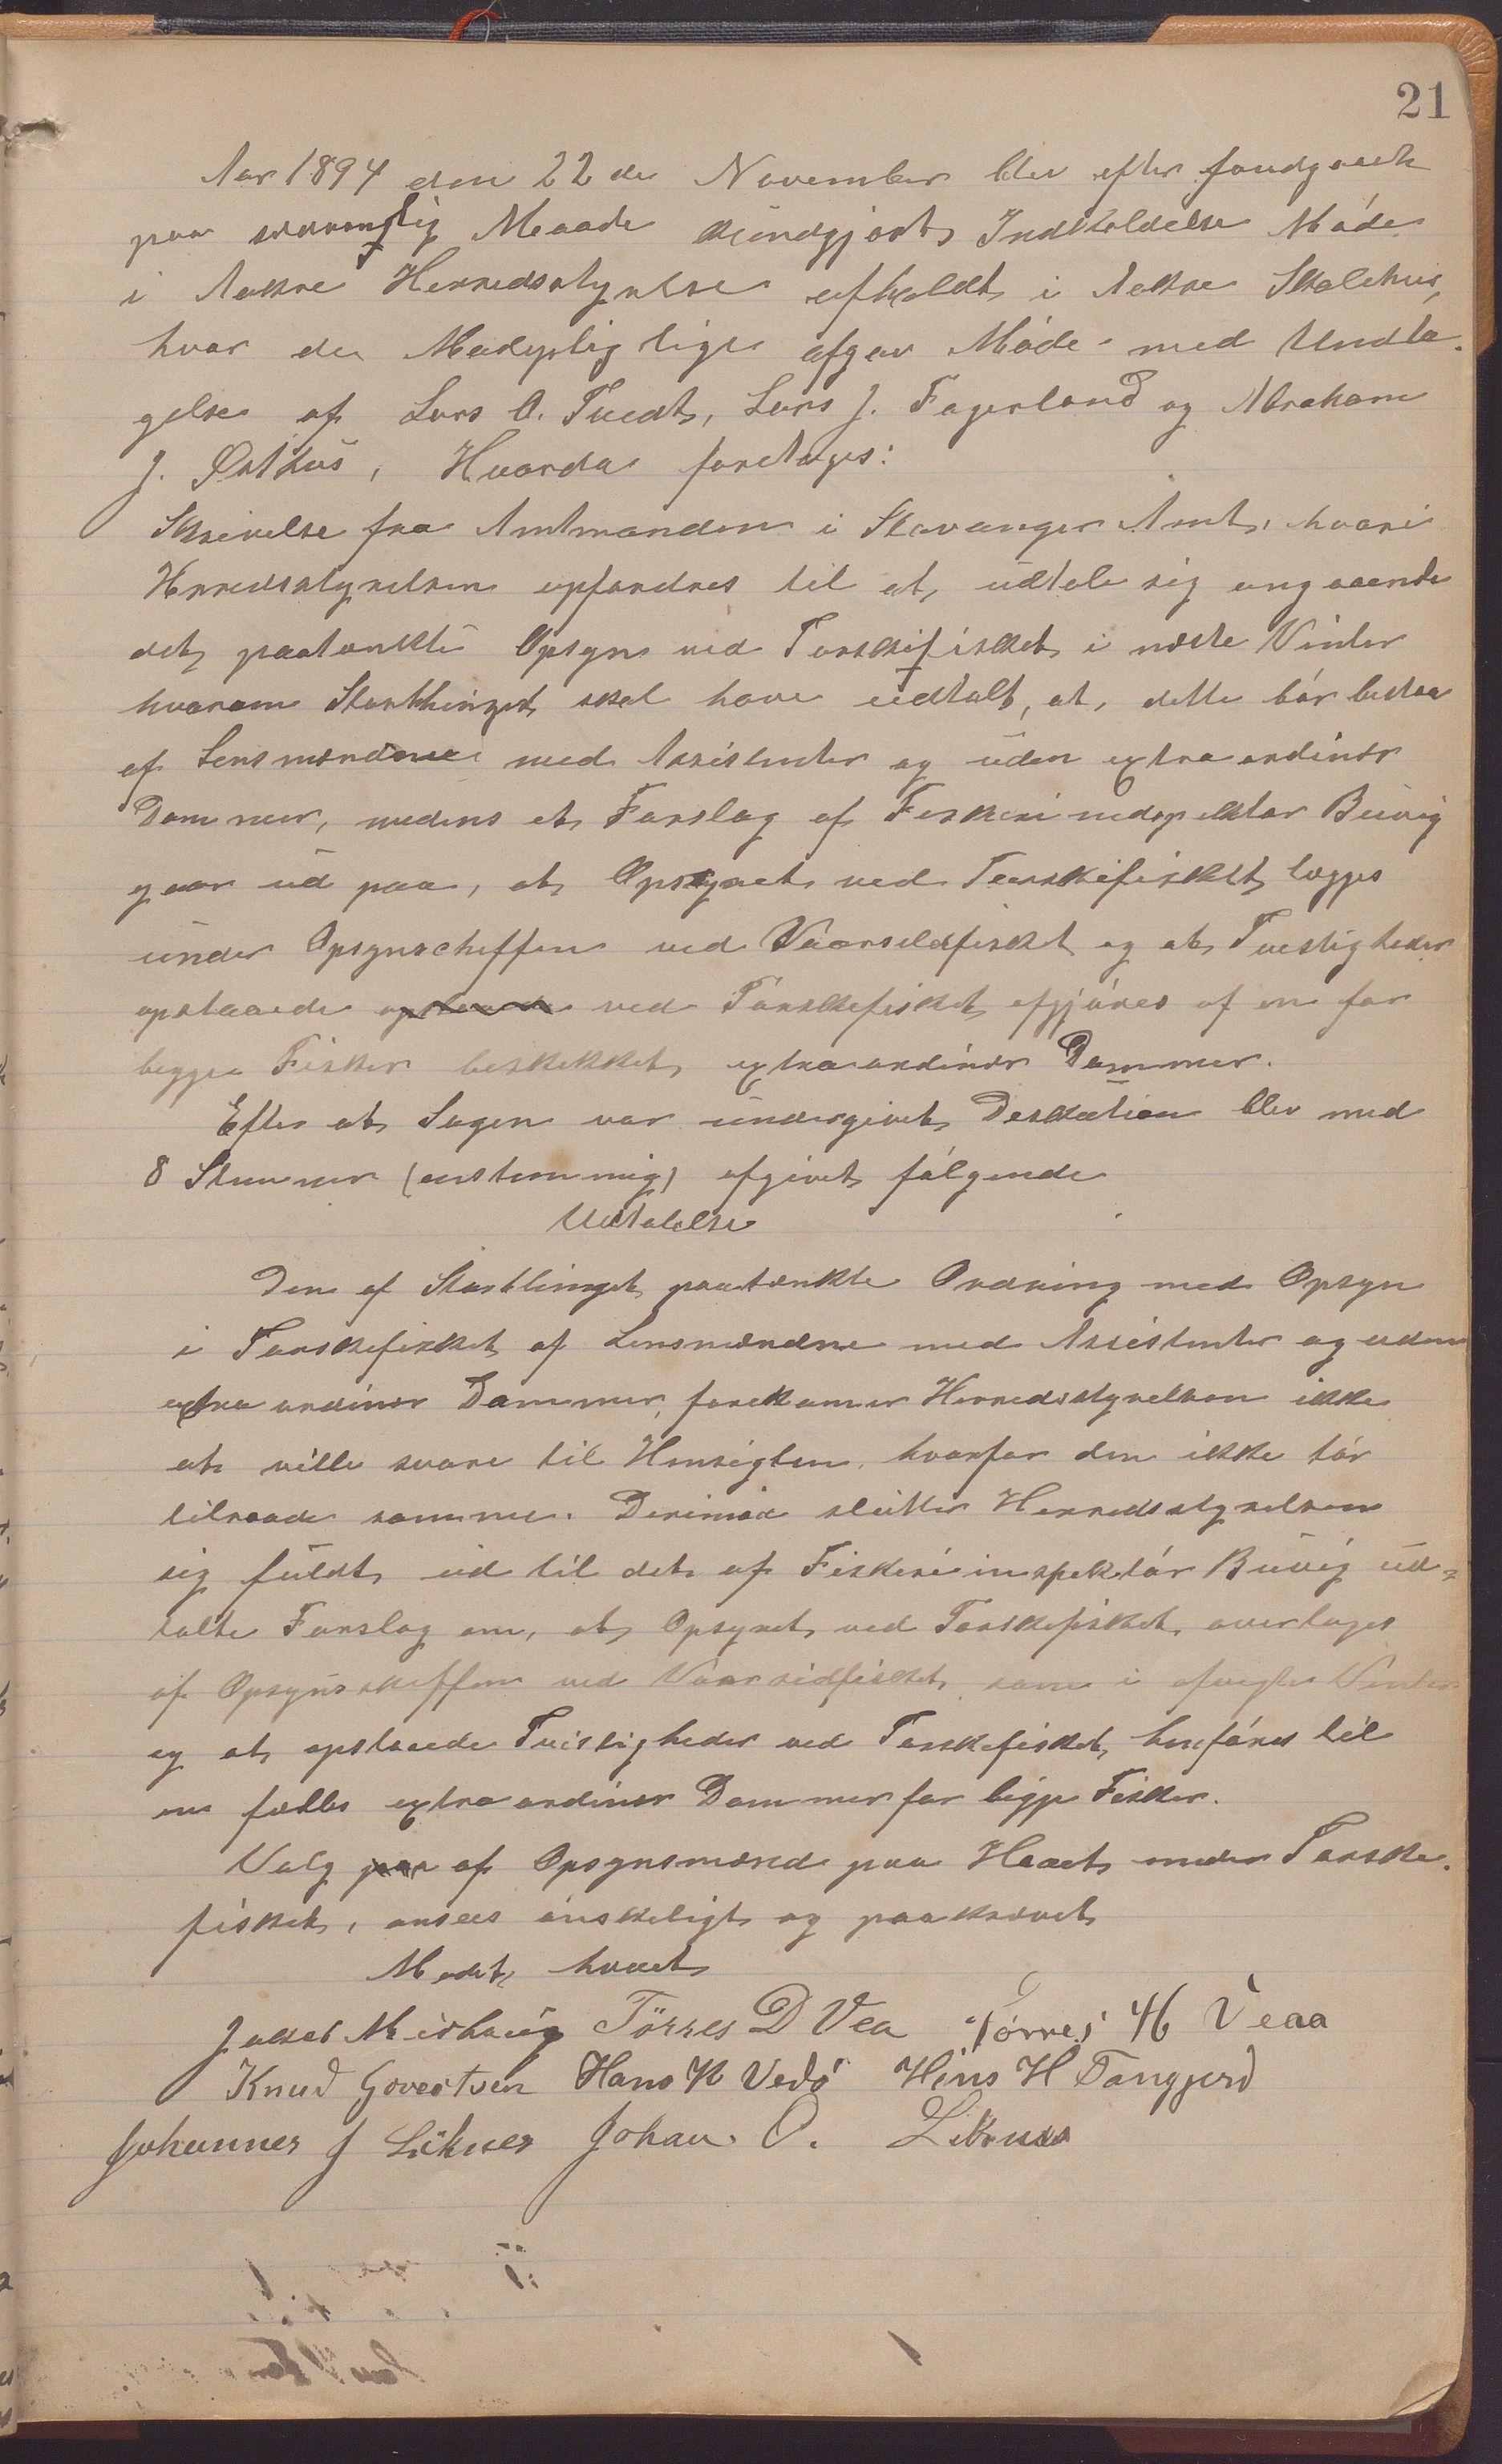 21
Aar 1894 den 22de November blev efter forudgaaet
paa sedvanlig Maade kundgjort Indkaldelse Møde
i Aakre Herredsstyrelse afholdt i Aakre Skolehus,
hvor de Mødepligtige afgav Møde med Undta-
gelse af Lars O. Tvedt, Lars J. Fagerland og Abraham
J. Østhus, Hvorda foretoges:
Skrivelse fra Amtmanden i Stavanger Amt, hvori
Herredsstyrelsen opfordres til at udtale sig angaaende
det paatænkte Opsyn ved Torskefisket i næste Vinter
hvorom Storthinget skal have udtalt, at dette bör bestaa
af Lensmændene med Assistenter og uden extraordinær
Dommer, medens et Forslag af Fiskeriindspektør Buvig
gaar ud paa, at Opsynet ved Torskefisket lægges
under Opsynscheffen ved Vaarsildfisket og at Tvestigheder
opstaaede ved Torskefisket afgjöres af en for
begge Fisker beskikket extraordinær Dommer.
Efter at Sagen var undergivet Deskution blev med
8 Stemmer (enstemmig) afgivet fölgende
Udtalelse
Den af Storthinget paatænkte Ordning med Opsyn
i Torskefisket af Lensmændne med Assistenter og uden
extraordinær Dommer, forekomer Herredsstyrelsen ikke
at ville svare til Hensigten, hvorfor den ikke tör
tilraade samme. Derimod slutter Herredsstyrelsen
sig fuldt ud til det af Fiskeriinspektör Buvig ud-
talte Forslag om, at Opsynet ved Torskefisket overtages
af Opsynsskeffen ved Vaarsildfisket som i afvigte Vinter
og at opstaaede Tvistigheder ved Torskefisket henföres til
en fælles extraordinær Dommer for begge Fisker.
Valg paa af Opsynsmænd paa Havet under Torske-
fisket, ansees önskeligt og paakrævet
Mødet hævet
Jakob Midhaug Törres D Vea Törres H Veaa
Knud Govertsen Hans K Vedö Hans H Tangjerd
Johannes J Liknes Johan O. Liknes